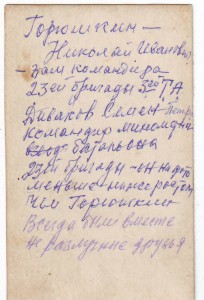 Горюшкин —
Николай Иванович
— зам командира
23ей бригады 3ей ТА
Диваков Семен Петр
командир миномётн
батальона
23ей бригады — он на фото
меньше ростом
чем Горюшкин
Всегда были вместе
неразлучные друзья